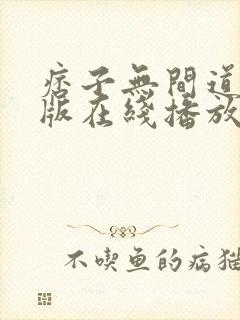 痞子無間道
版在綫播放
不喫鱼的病猫